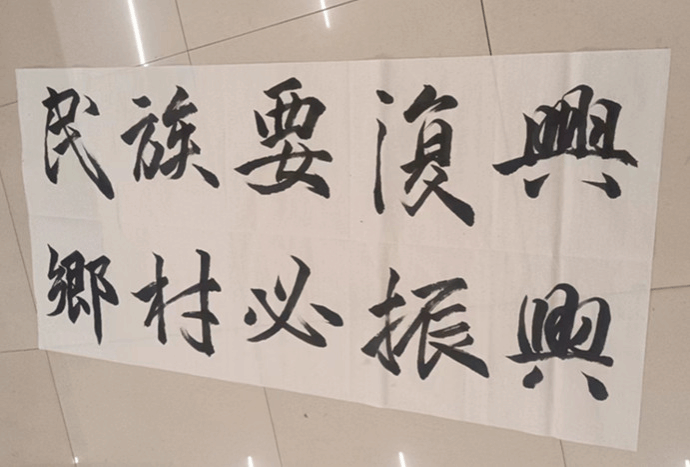 民族要復興
鄉村必振興